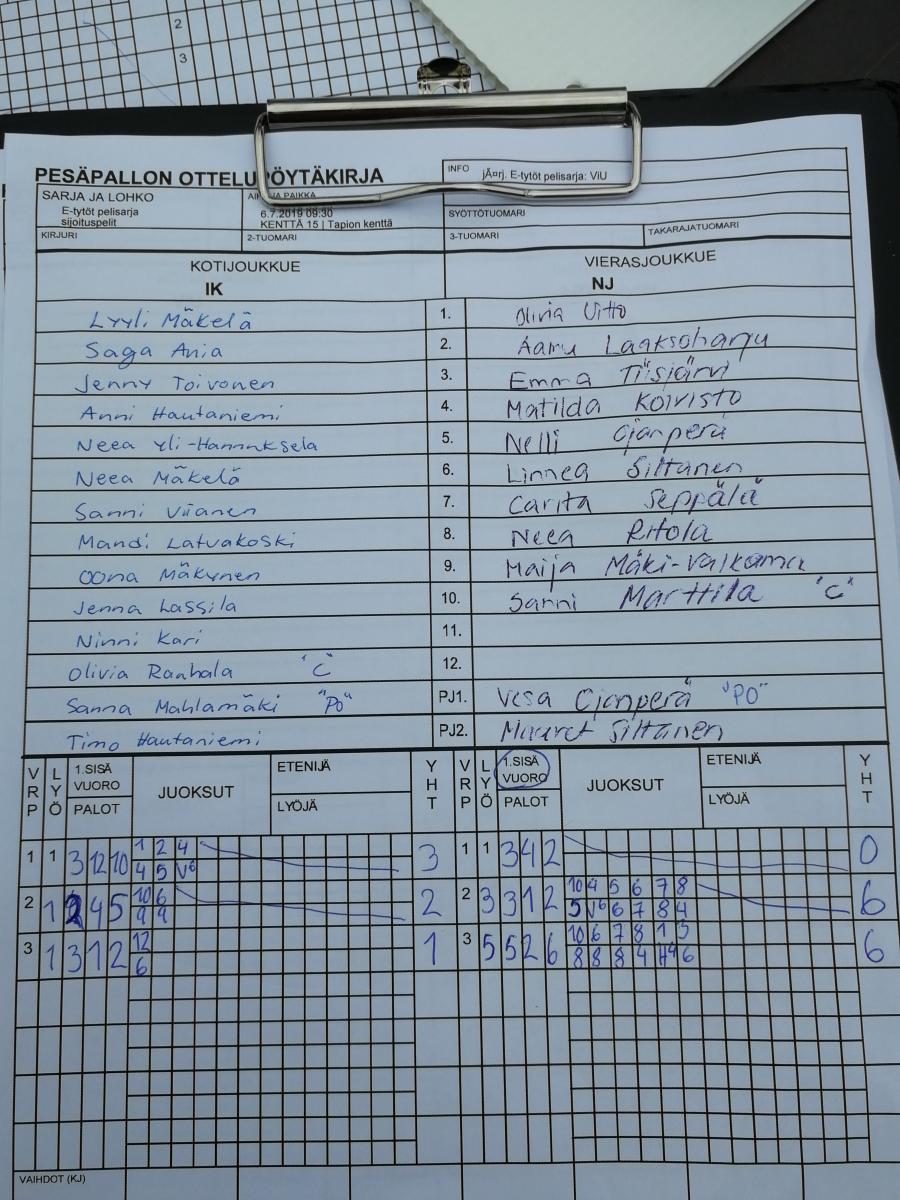 2
3
PESÄPALLON OTTELUPÖYTÄKIRJA
INFO jÃ¤rj. E-tytöt pelisarja: ViU
SARJA JA LOHKO
E-tytöt pelisarja
sijoituspelit
PAIKKA
6.7.2019 09:30
KENTTÄ 15 | Tapion kenttä
SYÖTTÖTUOMARI
KIRJURI 2-TUOMARI 3-TUOMARI TAKARAJATUOMARI
KOTIJOUKKUE VIERASJOUKKUE
IK NJ
Lyyli Mäkelä 1. Olivia Uitto
Saga Ania 2. Aamu Laaksoharju
Jenny Toivonen 3. Emma Tiisjärvi
Anni Hautaniemi 4. Matilda Koivisto
Neea Yli-Hannuksela 5. Nelli Ojanperä
Neea Mäkelä 6. Linnea Siltanen
Sanni Viianen 7. Carita Seppälä
Mandi Latvakoski 8. Neea Ritola
Oona Mäkynen 9. Maija Mäki-Valkama
Jenna Lassila 10. Sanni Marttila "C"
Ninni Kari 11.
Olivia Rauhala "C" 12.
Sanna Mahlamäki "PO" PJ1. Vesa Ojanperä "PO"
Timo Hautaniemi PJ2. Maaret Siltanen
VRP LYÖ 1.SISÄ VUORO PALOT JUOKSUT ETENIJÄ LYÖJÄ YHT VRP LYÖ 1.SISÄ VUORO PALOT JUOKSUT ETENIJÄ LYÖJÄ YHT
1 1 3 12 10 1 2 4 3 1 1 3 4 2 0
4 5 V6
2 1 2 4 5 10 6 2 2 3 3 1 2 10 4 5 6 7 8 6
9 9 5 V6 6 7 8 4
3 1 3 1 2 12 1 3 5 5 2 6 10 6 7 8 1 3 6
6 8 8 8 4 H4 6
VAIHDOT (KJ)